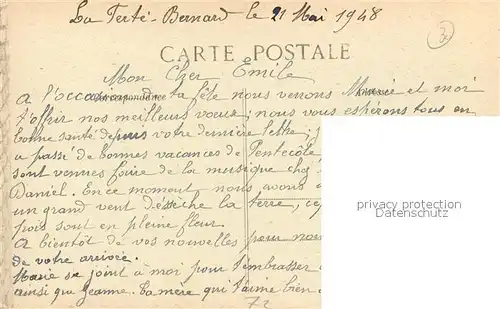 La Ferté-Bernard le 21 Mai 1948
CARTE POSTALE
Mon Cher Emile
A l'occasion de ta fête nous venons Marie et moi
Correspondance
t'offrir nos meilleurs voeux; nous vous espérons tous en
bonne santé depuis votre dernière lettre;
a passé de bonnes vacances de Pentecôte
sont venues faire de la musique chez
Daniel. En ce moment, nous avons
un grand vent déssèche la terre,
pois sont en pleine fleur.
A bientôt de vos nouvelles pour nous
de votre arrivée.
Marie se joint à moi pour t'embrasser
ainsi que Jeanne. Ta mère qui t'aime bien
72
privacy protection
Datenschutz